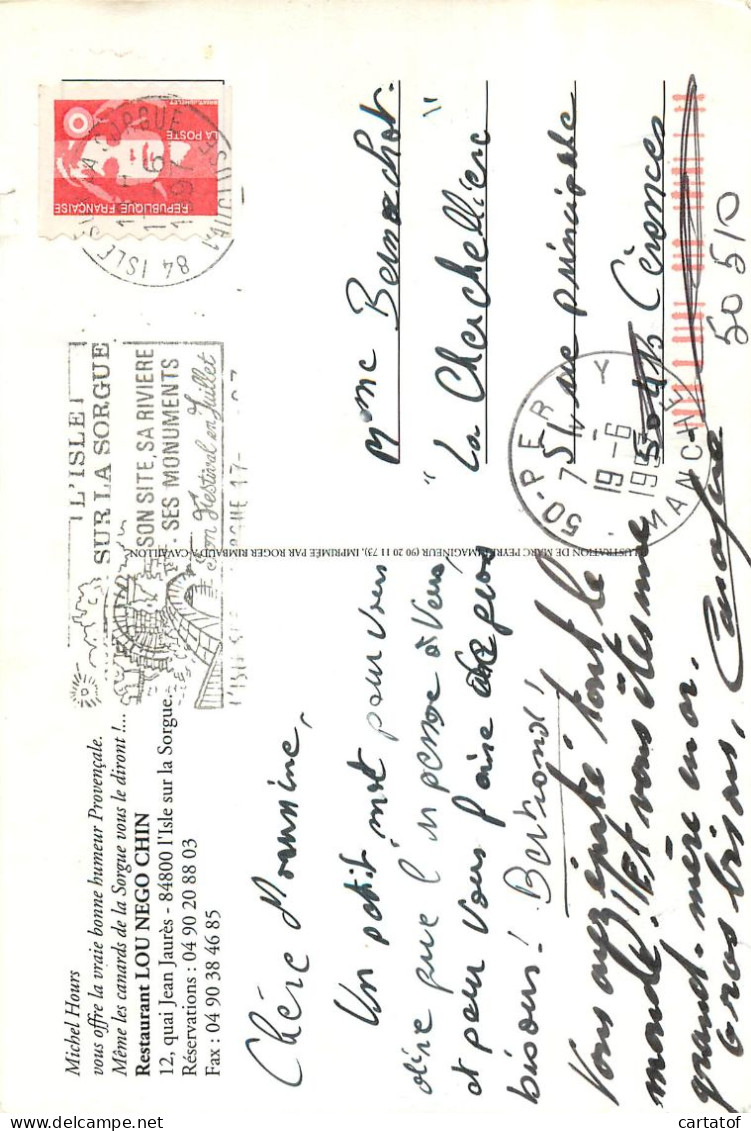 Michel Hours
vous offre la vraie bonne humeur Provençale.
Même les canards de la Sorgue vous le diront !...
Restaurant LOU NEGO CHIN
12, quai Jean Jaurès - 84800 l'Isle sur la Sorgue.
Réservations : 04 90 20 88 03
Fax : 04 90 38 46 85
Chère Mamine,
Un petit mot pour vous
dire que l'on pense à Vous,
et pour vous faire de gros
bisous! Bertrand!
Vous avez épaté tout le
monde! Et vous êtes une
grand-mère en or.
Gros bisous,
ILLUSTRATION DE MARC PEYRE IMAGINEUR (90 20 11 73), IMPRIMÉE PAR ROGER RIMBAUD À CAVAILLON
L'ISLE
SUR LA SORGUE
SON SITE, SA RIVIERE
SES MONUMENTS
Son Festival en Juillet
84 ISLE SUR LA SORGUE
VAUCLUSE
REPUBLIQUE FRANÇAISE
LA POSTE
Mme Bernachot.
" La Cherchellienc "
51 rue principale
Cérences
50 510
50-PERCY
19-6
MANCHE
www.delcampe.net
cartatof